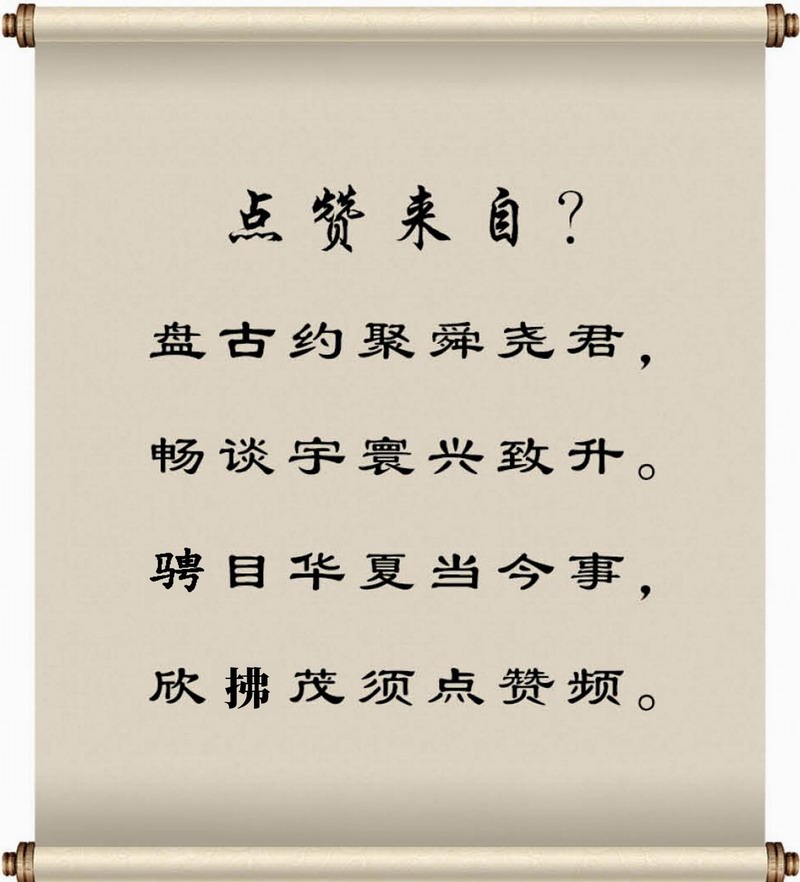 点赞来自?
盘古约聚舜尧君，
畅谈宇寰兴致升。
骋目华夏当今事，
欣拂茂须点赞频。